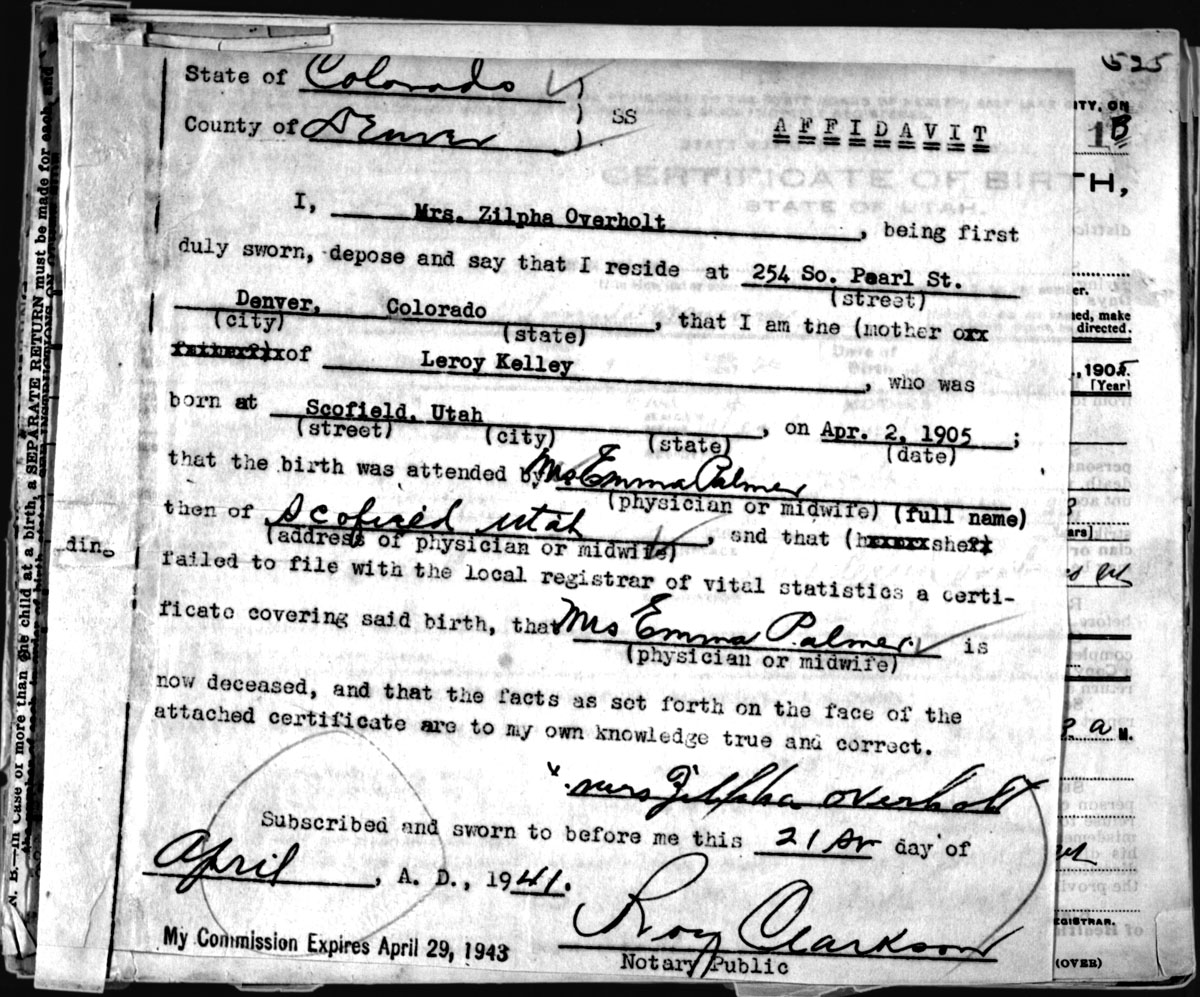 525
State of Colorado
County of Denver
SS
AFFIDAVIT
CERTIFICATE OF BIRTH
STATE OF UTAH.
I, Mrs. Zilpha Overholt, being first
duly sworn, depose and say that I reside at 254 So. Pearl St.
(street)
Denver, Colorado, that I am the (mother orx
(city) (state)
fatherf)xof Leroy Kelley, who was
born at Scofield, Utah, on Apr. 2, 1905;
(street) (city) (state) (date)
that the birth was attended by Mrs Emma Palmer
(physician or midwife) (full name)
then of Scofield Utah, snd that (hxxxxxshe
(address of physician or midwife)
failed to file with the local registrar of vital statistics a certi-
ficate covering said birth, that Mrs Emma Palmer is
(physician or midwife)
now deceased, and that the facts as set forth on the face of the
attached certificate are to my own knowledge true and correct.
x mrs Zilpha overholt
Subscribed and sworn to before me this 21st day of
April, A. D., 1941.
My Commission Expires April 29, 1943
Roy Clarkson
Notary Public
N. B.—In Case of more than one child at a birth, a SEPARATE RETURN must be made for each, and
ding
ITY, ON
1B
TH,
er.
ned, make
directed.
, 1905.
(Year)
ars)
a M.
EGISTRAR.
(OVER)